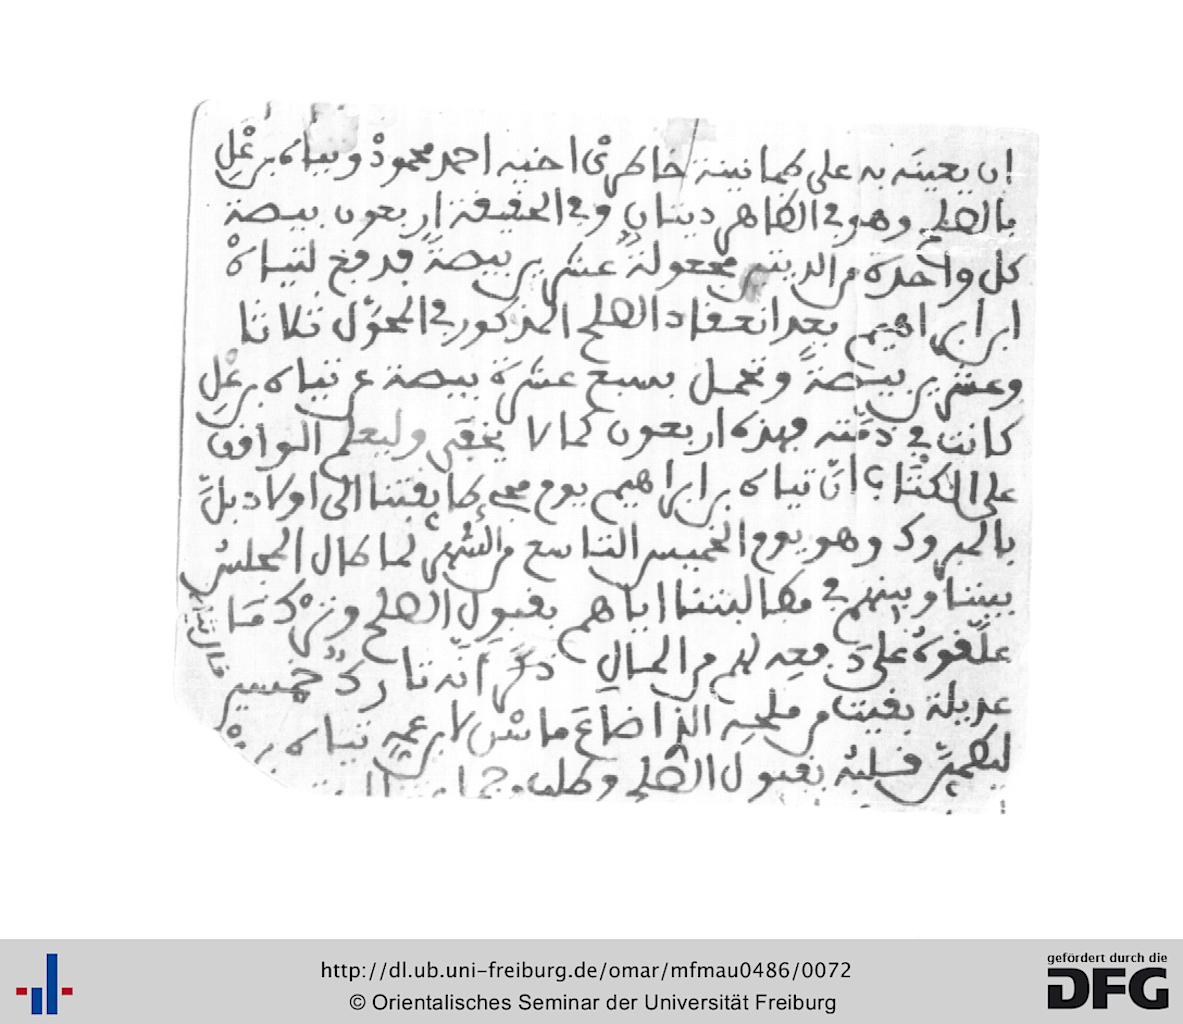 ان يعينه به على طمانينة خاطري اخيه احمد محمود وتياه بن عْلِ
بالصلح وهو في الظاهر ديتان وفي الحقيقة اربعون بيصة
كل واحدة من الديتين مجعولة عشرين بيصة قد دفع لتياه
ابن ابراهيم بعد انعقاد الصلح المذكور في المحوّل ثلاثا
وعشرين بيصة وتحمل بسبع عشرة بيصة عن تياه بن عْلِ
كانت في ذمّته فهذه اربعون كما لا يخفى وليعلم الواقف
على الكتاب انّ تياه بن ابراهيم يوم مجيء طايفتنا الى اولاد
بالمبروك وهو يوم الخميس التاسع من الشهر لما طال المجلس
بيننا وبينهم في مطالبتنا اياهم بقبول الصلح وترك ما
علّقوه على دفعه لهم من المال ذكر انّه تارك خمسين
عديلة بقيت من ملحه الذي ضاع لابن عمه تياه بن
بقبول الصلح
قال تياه
http://dl.ub.uni-freiburg.de/omar/mfmau0486/0072
© Orientalisches Seminar der Universität Freiburg
gefördert durch die
DFG